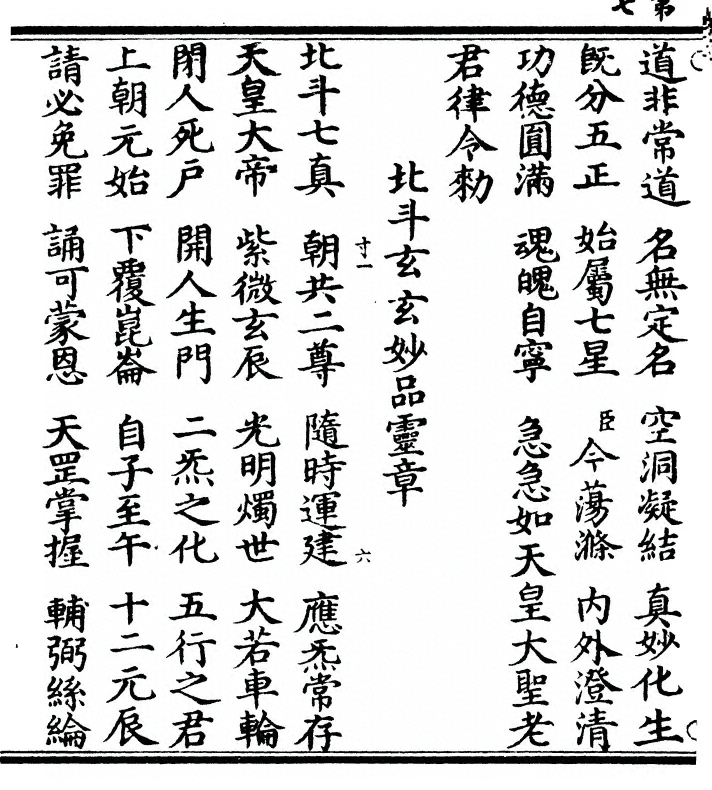 道非常道　名無定名　空洞凝結　真妙化生
既分五正　始屬七星　臣今蕩滌　內外澄清
功德圓滿　魂魄自寧　急急如天皇大聖老
君律令勑
北斗玄玄妙品靈章
北斗七真　朝共二尊　隨時運建　應炁常存
寸一　六
天皇大帝　紫微玄辰　光明燭世　大若車輪
閉人死戶　開人生門　二炁之化　五行之君
上朝元始　下覆崑崙　自子至午　十二元辰
請必免罪　誦可蒙恩　天罡掌握　輔弼絲綸